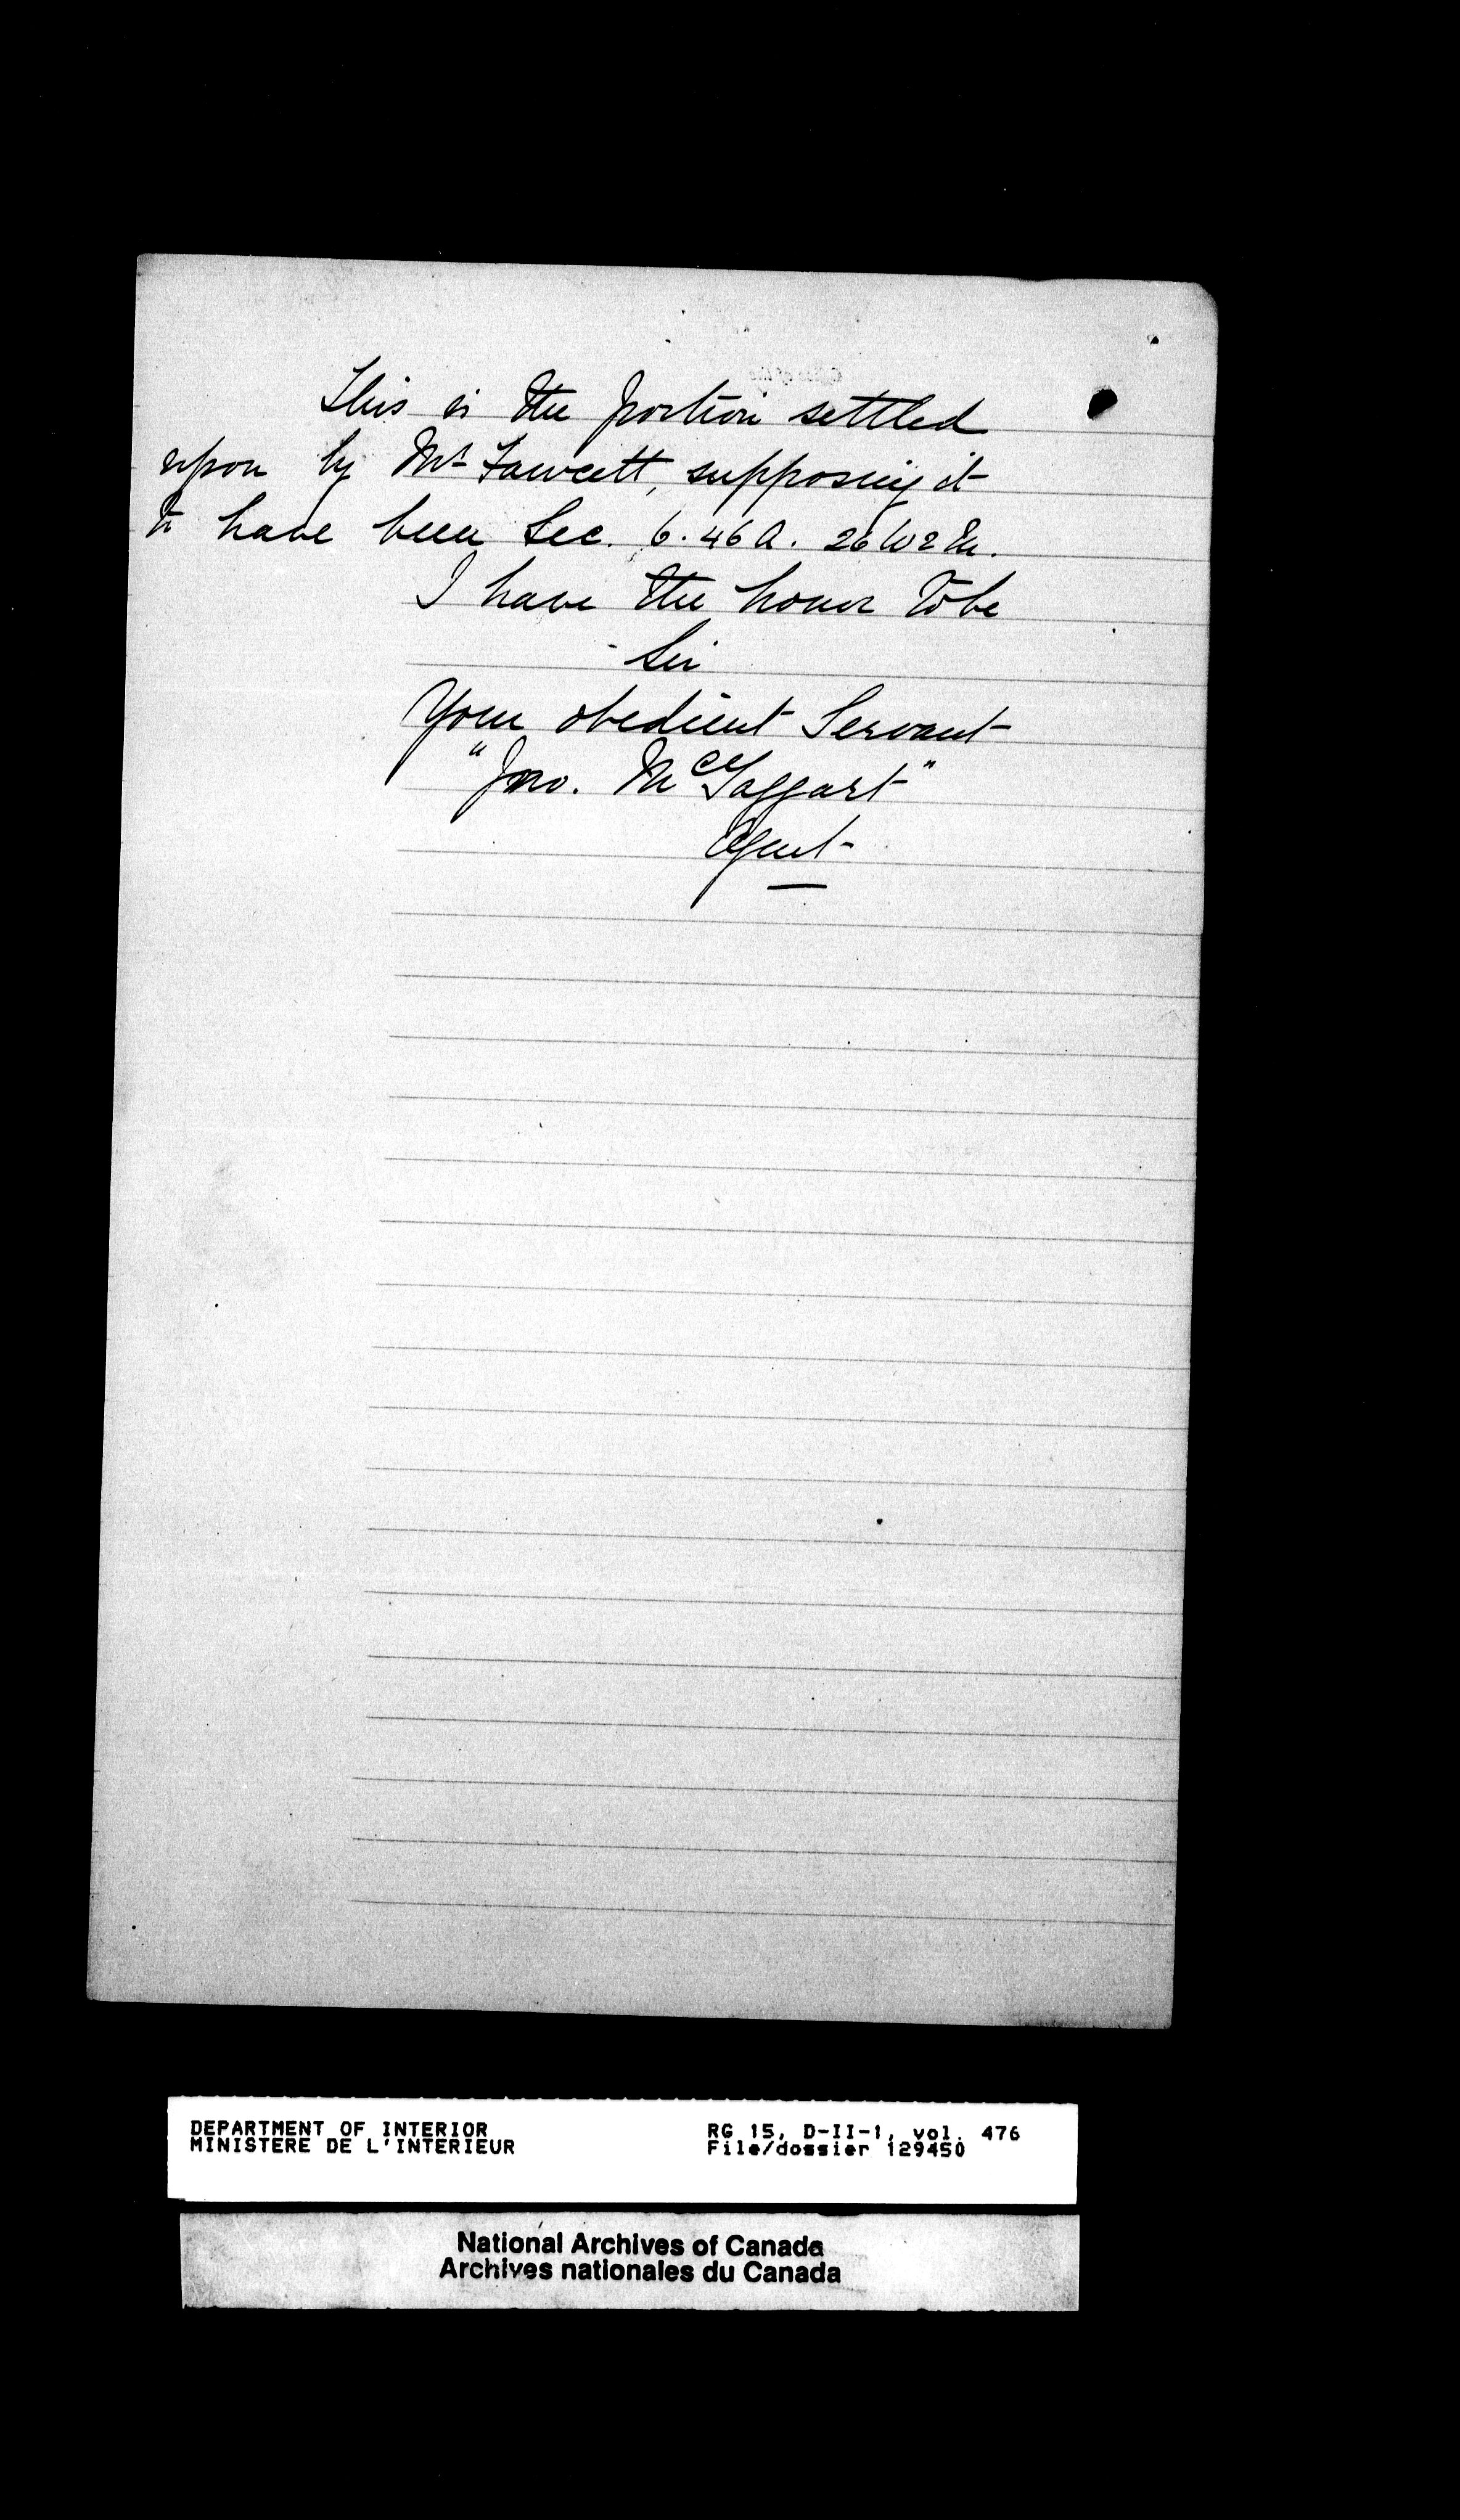 This is the portion settled
upon by Mr Fawcett, supposing it
to have been Sec. 6. 46 A. 26 W 2 M.
I have the honor to be
Sir
Your obedient Servant
"Jno. McTaggart"
Agent
DEPARTMENT OF INTERIOR
MINISTERE DE L'INTERIEUR
RG 15, D-II-1, vol. 476
File/dossier 129450
National Archives of Canada
Archives nationales du Canada